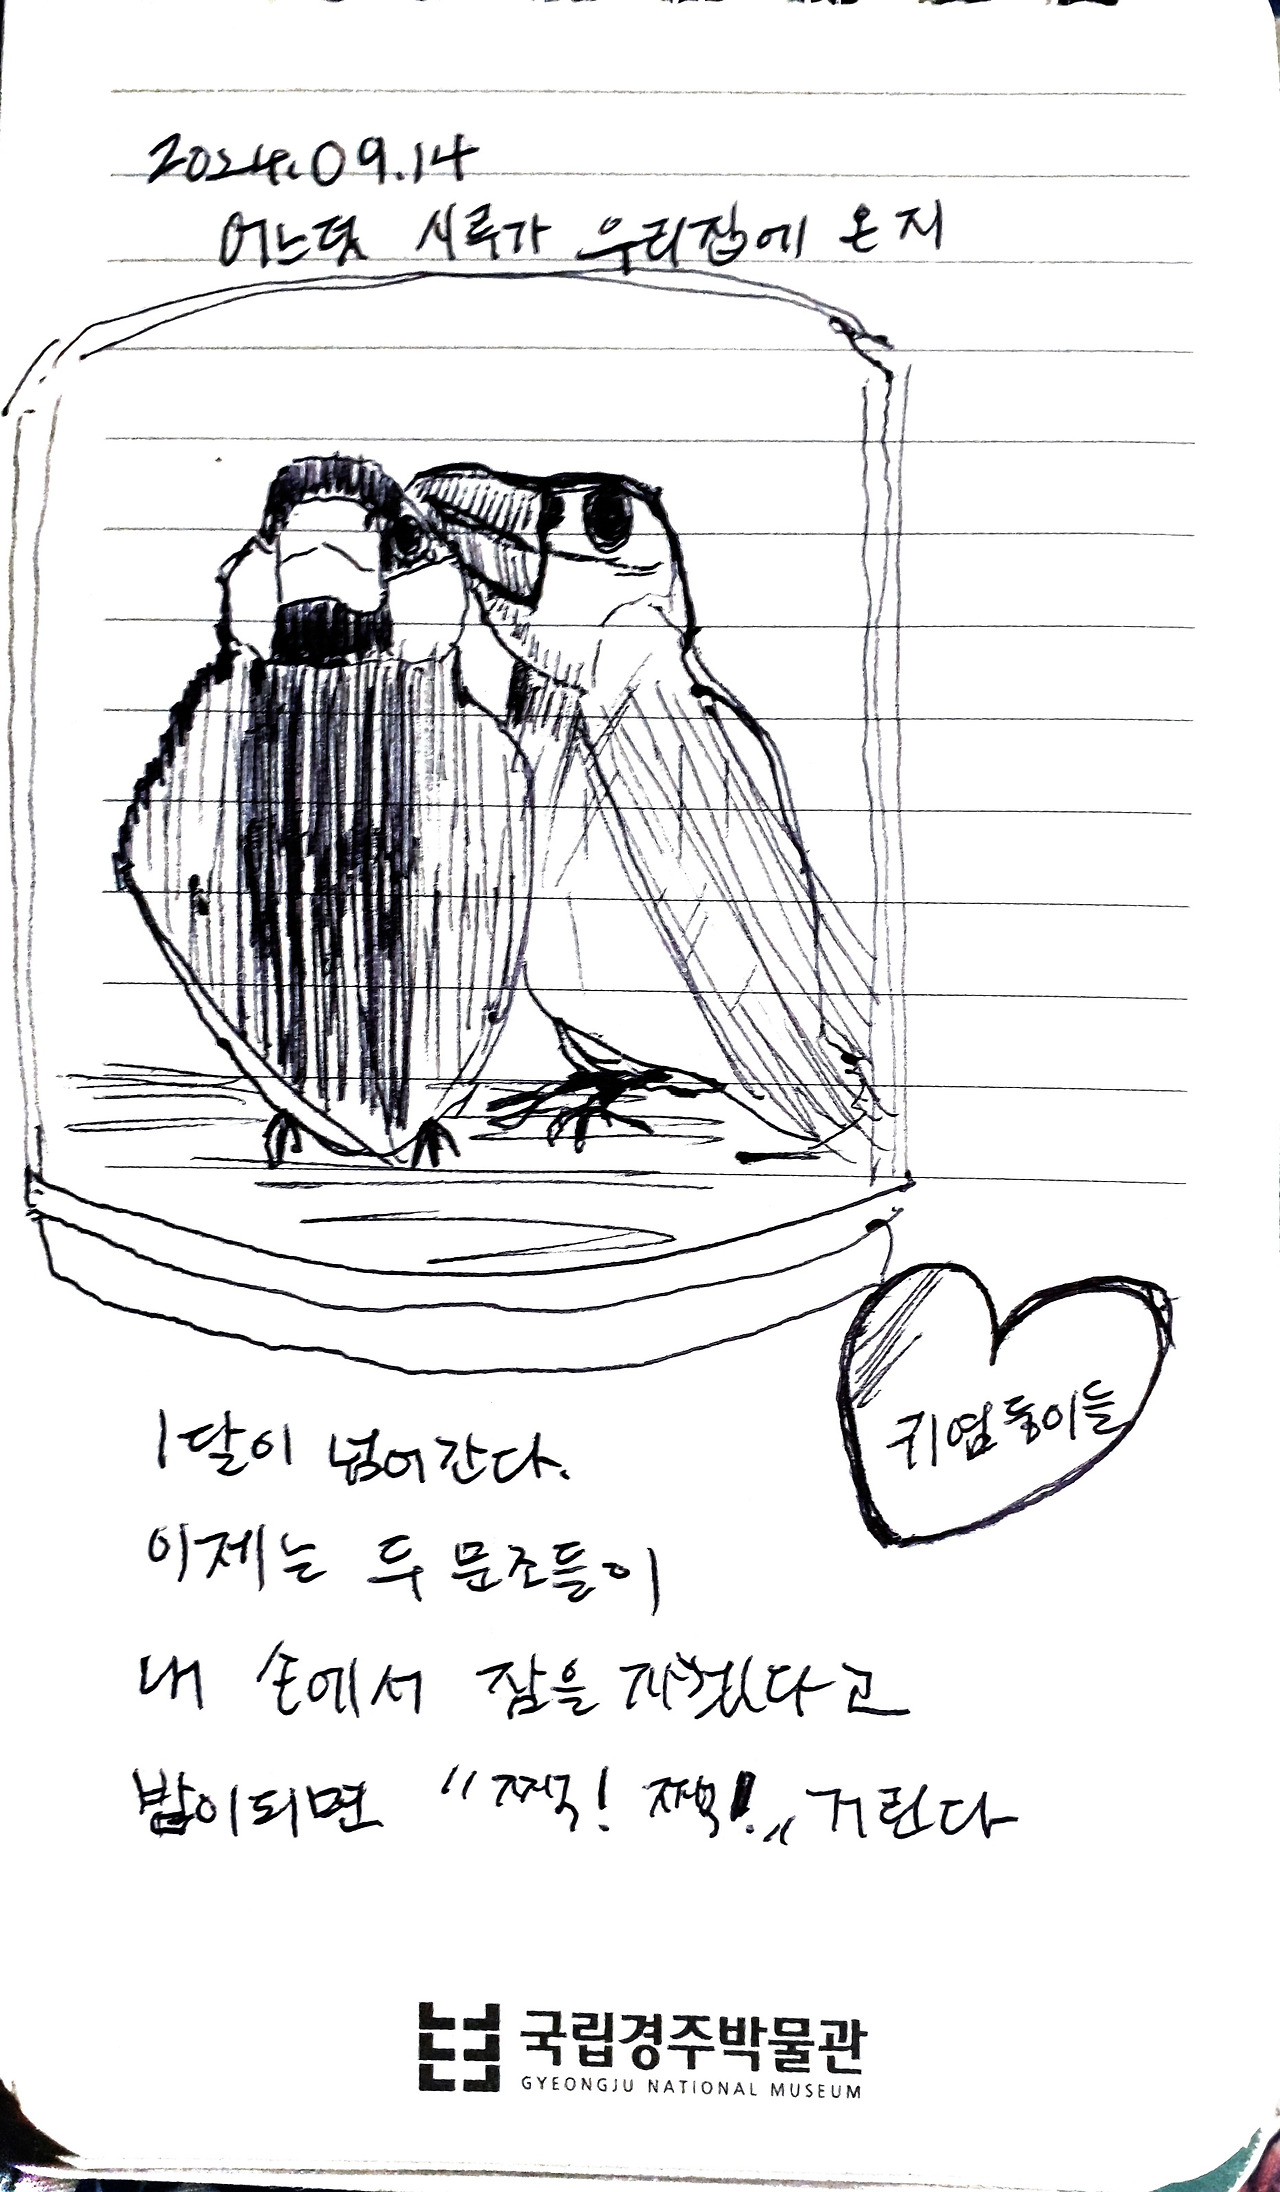 2024.09.14
어느덧 시루가 우리집에 온지
귀염둥이들
1달이 넘어간다.
이제는 두 문조들이
내 손에서 잠을 자겠다고
밤이되면 "짹! 짹!" 거린다
국립경주박물관
GYEONGJU NATIONAL MUSEUM